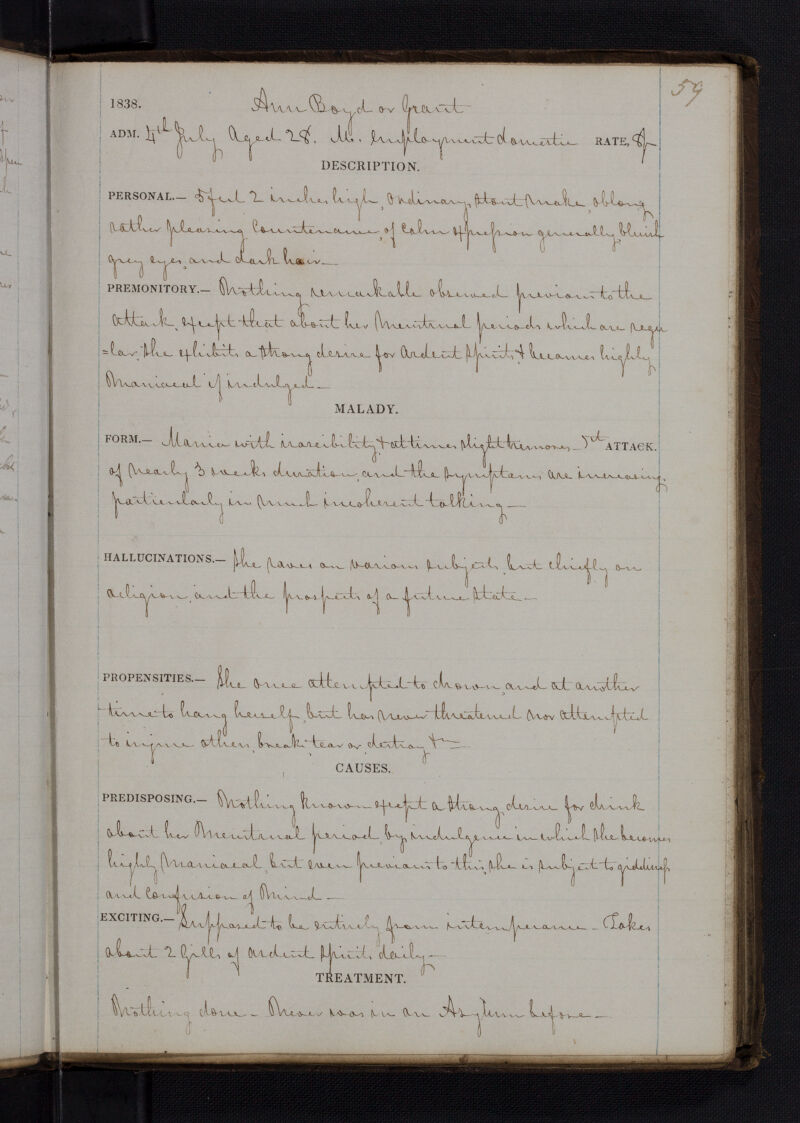 59
1838. Ann Boyd or Grant
ADM. 4th July Aged 28. M. Employment domestic RATE,
DESCRIPTION.
PERSONAL.— 5 feet 2 inches high, Ordinary, Stout Make, oblong
rather pleasing Countenance, of Calm expression generally, bluish
grey eyes, and dark hair —
PREMONITORY.— Nothing remarkable observed previous to the
attack, except that about her Menstrual periods which are regu
=lar, she exhibits a strong desire for Ardent Spirits & becomes highly
Maniacal if indulged —
MALADY.
FORM.— Mania with irascibility & at times slight — 1st ATTACK.
of Nearly 3 weeks duration, and the symptoms are increasing,
particularly in Much incoherent talking —
HALLUCINATIONS.— She raves on various subjects, but chiefly on
religion, and the prospects of a future State —
PROPENSITIES.— She once attempted to drown, and at another
time to hang herself, but has never threatened Nor attempted
to injure others, break tear or destroy &c —
CAUSES.
PREDISPOSING.— Nothing known except a strong desire for drink
about her Menstrual period, by indulgence in which she becomes
highly Maniacal, but even previous to this, she is subject to giddiness,
and Confusion of Mind —
EXCITING.— Supposed to be entirely from intemperance — Takes
about 2 Gills of ardent spirits daily —
TREATMENT.
Nothing done — Never was in an Asylum before —